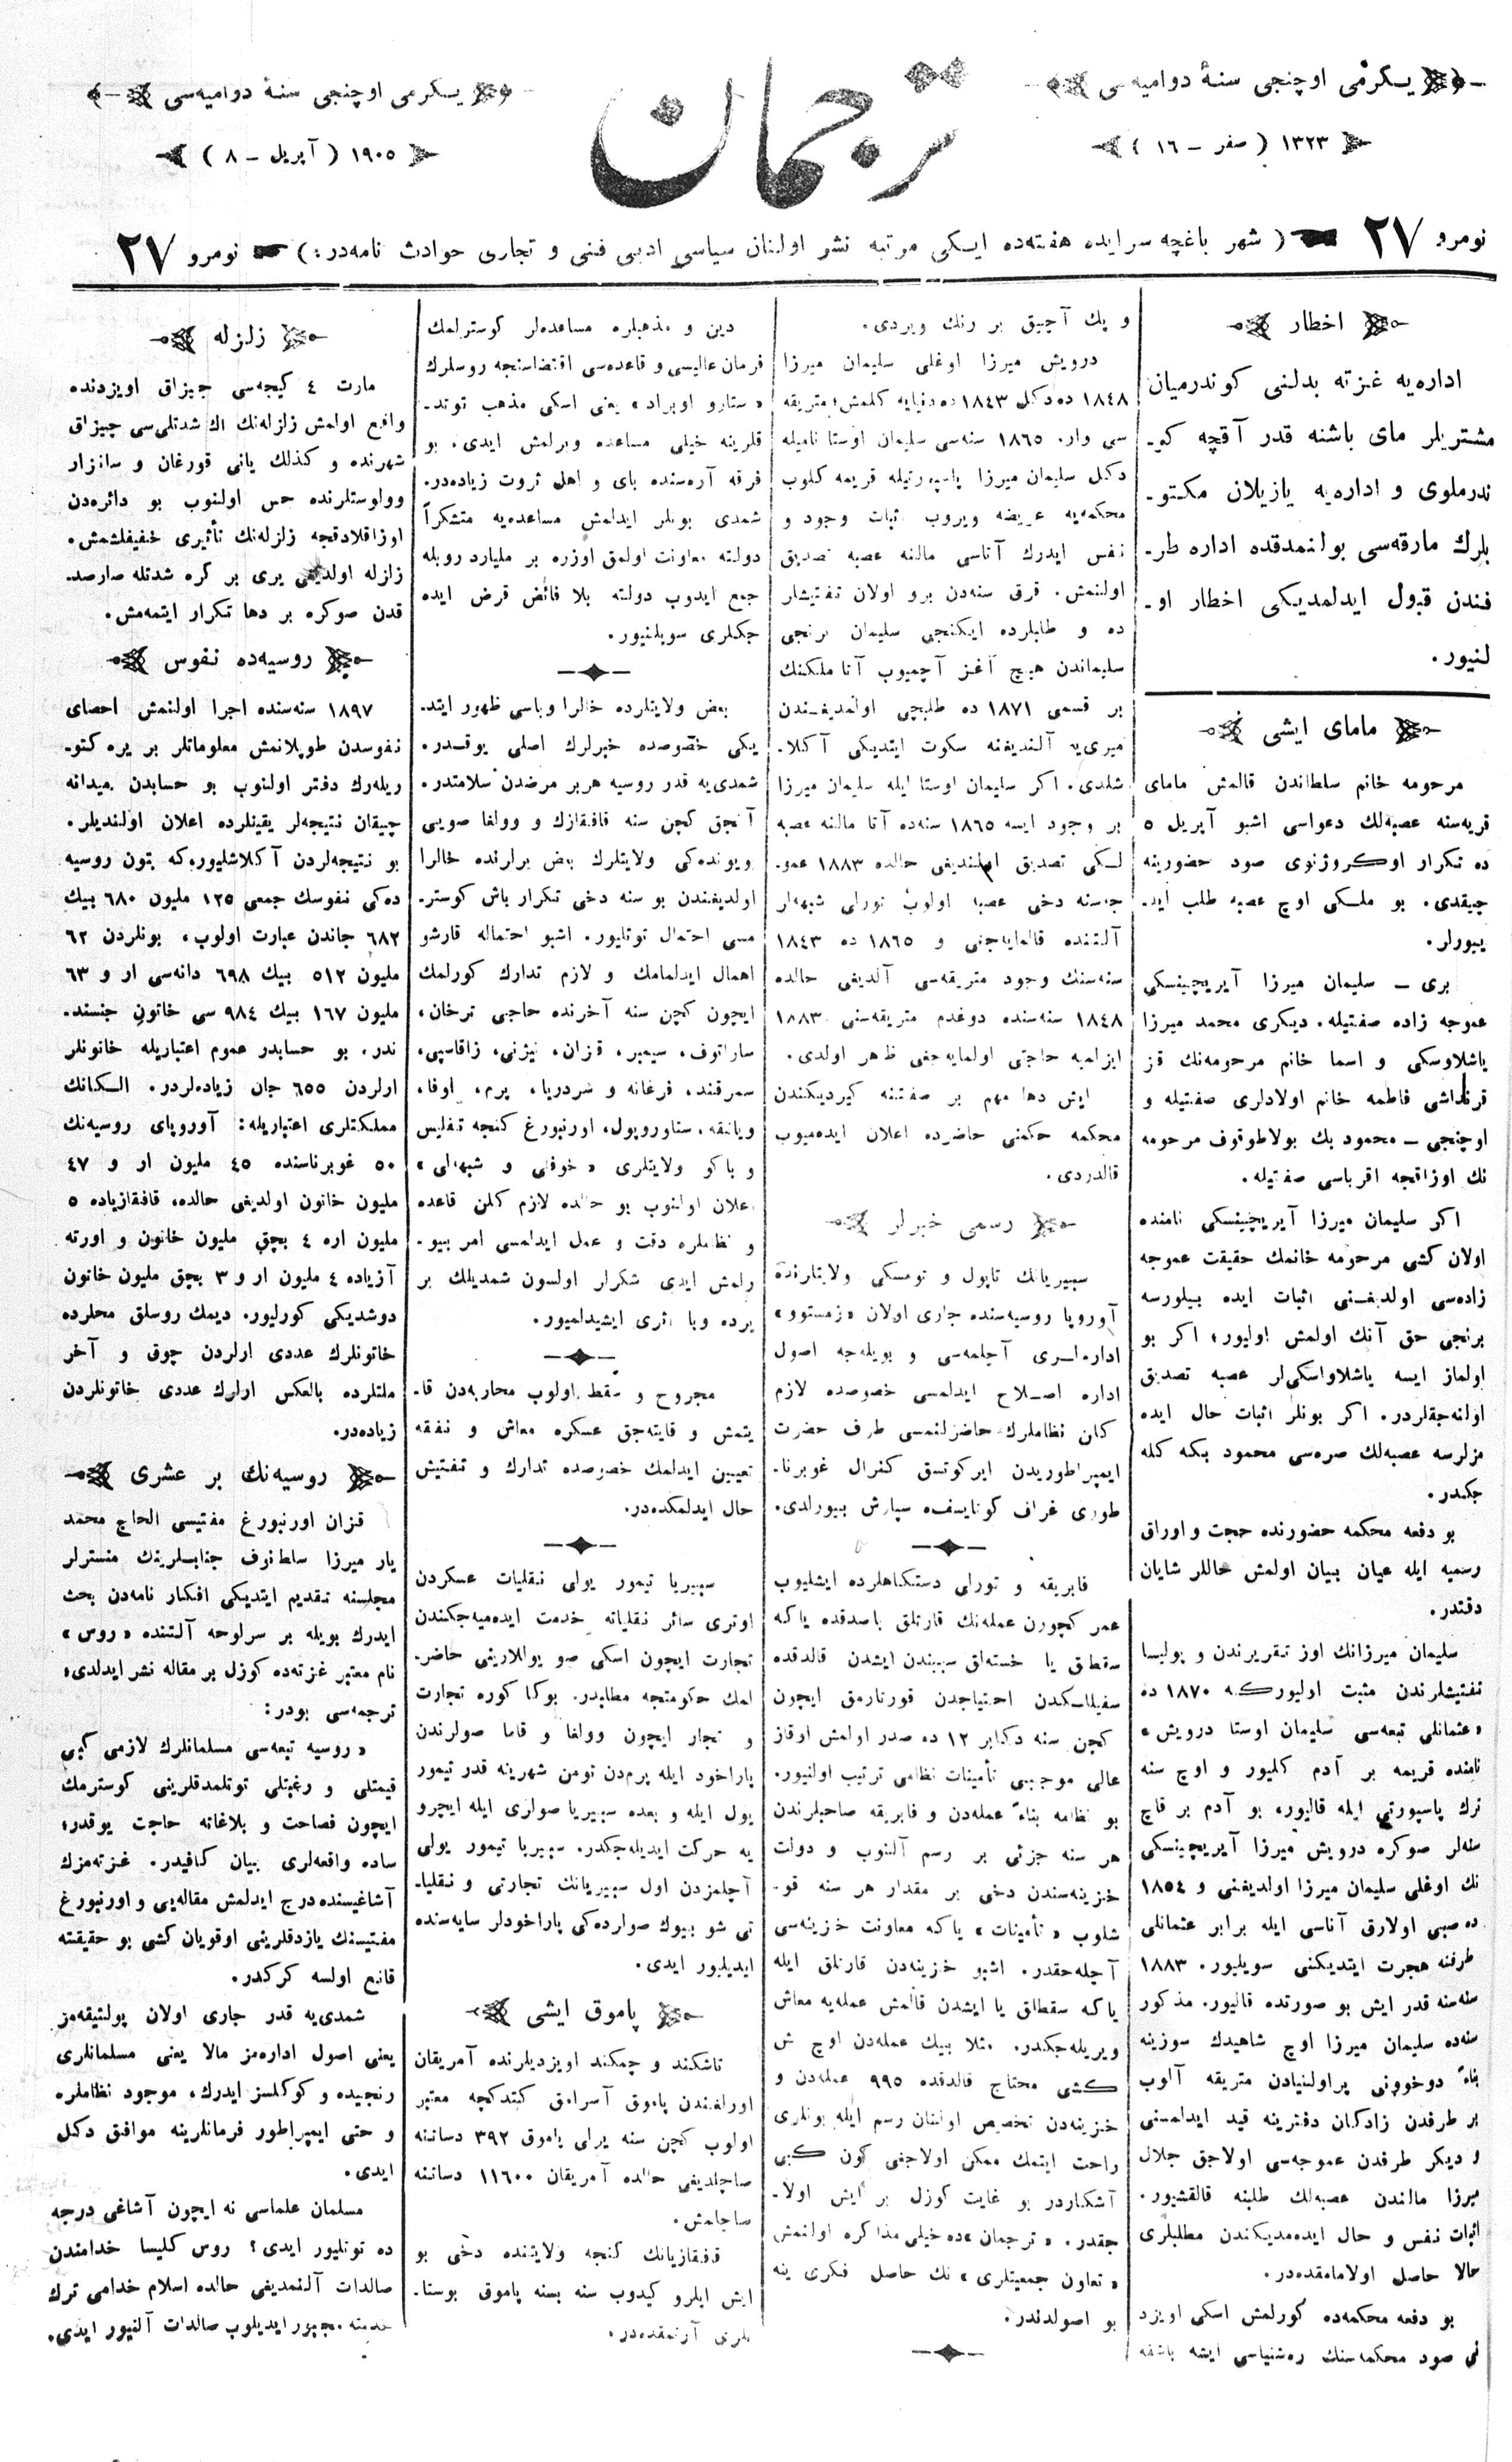 يكرمى اوچنجى سنۀ دواميه‌سى
١٣٢٣ ( صفر – ١٦ )
ترجمان
يكرمى اوچنجى سنۀ دواميه‌سى
١٩٠٥ ( آپريل – ٨ )
نومرو ٢٧ ( شهر باغچه سرايده هفته‌ده ايكى مرتبه نشر اولنان سياسى ادبى فنى و تجارى حوادث نامه‌در: ) نومرو ٢٧
اخطار
اداره‌يه غزته بدلنى كوندرميان
مشتريلر ماى باشنه قدر آقچه كو-
ندرملوى و اداره‌يه يازيلان مكتو-
بلرك مارقه‌سى بولنمدقده اداره طر-
فندن قبول ايدلمديكى اخطار او-
لنيور.
ماماى ايشى
مرحومه خانم سلطاندن قالمش ماماى
قريه‌سنه عصبه‌لك دعواسى اشبو آپريل ٥
ده تكرار اوكروژنوى صود حضورينه
چيقدى. بو ملكى اوچ عصبه طلب ايد-
ييورلر.
برى – سليمان ميرزا آيريچينسكى
عموجه زاده صفتيله. ديكرى محمد ميرزا
ياشلاوسكى و اسما خانم مرحومه‌نك قز
قرنداشى فاطمه خانم اولادلرى صفتيله و
اوچنجى – محمود بك بولاطوقوف مرحومه
نك اوزاقجه اقرباسى صفتيله.
اكر سليمان ميرزا آيريچينسكى نامنده
اولان كشى مرحومه خانمك حقيقت عموجه
زاده‌سى اولديغنى اثبات ايده بيلورسه
برنجى حق آنك اولمش اوليور؛ اكر بو
اولماز ايسه ياشلاواسكى‌لر عصبه تصديق
اولنه‌جقلردر. اكر بونلر اثبات حال ايده
مزلرسه عصبه‌لك صره‌سى محمود بكه كله
جكدر.
بو دفعه محكمه حضورنده حجت و اوراق
رسميه ايله عيان بيان اولمش حاللر شايان
دقتدر.
سليمان ميرزانك اوز تقريرندن و پوليسا
تفتيشلرندن مثبت اوليوركه ١٨٧٠ ده
«عثمانلى تبعه‌سى سليمان اوستا درويش»
نامنده قريمه بر آدم كليور و اوچ سنه
ترك پاسپورتى ايله قاليور، بو آدم بر قاچ
سنه‌لر صوكره درويش ميرزا آيريچينسكى
نك اوغلى سليمان ميرزا اولديغنى و ١٨٥٤
ده صبى اولارق آناسى ايله برابر عثمانلى
طرفنه هجرت ايتديكنى سويليور. ١٨٨٣
سنه‌سنه قدر ايش بو صورتده قاليور. مذكور
سنه‌ده سليمان ميرزا اوچ شاهيدك سوزينه
بناءً دوخوونى پراولنيادن متريقه آلوب
بر طرفدن زادكان دفترينه قيد ايدلمسنى
و ديكر طرفدن عموجه‌سى اولاجق جلال
ميرزا مالندن عصبه‌لك طلبنه قالقشيور.
اثبات نفس و حال ايده‌مديكندن مطلبلرى
حالا حاصل اولامامقده‌در.
بو دفعه محكمه‌ده كورلمش اسكى اويزد
نى صود محكمه‌سنك ره‌شنياسى ايشه باشقه
و پك آچيق بر رنك ويردى.
درويش ميرزا اوغلى سليمان ميرزا
١٨٤٨ ده دكل ١٨٤٣ ده دنيايه كلمش؛ متريقه
سى وار. ١٨٦٥ سنه‌سى سليمان اوستا ناميله
دكل سليمان ميرزا پاسپورتيله قريمه كلوب
محكمه‌يه عريضه ويروب اثبات وجود و
نفس ايدرك آناسى مالنه عصبه تصديق
اولنمش. قرق سنه‌دن برو اولان تفتيشلر
ده و طلبلرده ايكنجى سليمان برنجى
سليماندن هيچ آغز آچميوب آتا ملكنك
بر قسمى ١٨٧١ ده طلبچى اولمديغندن
ميرى‌يه آلنديغنه سكوت ايتديكى آكلا-
شلدى. اكر سليمان اوستا ايله سليمان ميرزا
بر وجود ايسه ١٨٦٥ سنه‌ده آتا مالنه عصبه
لكى تصديق اولنديغى حالده ١٨٨٣ عمو-
جه‌سنه دخى عصبه اولوب تورلى شبهه‌لر
آلتنده قالماياجغى و ١٨٦٥ ده ١٨٤٣
سنه‌سنك وجود متريقه‌سى آلديغى حالده
١٨٤٨ سنه‌سنده دوغدم متريقه‌سنى ١٨٨٣
ابزلمه‌يه حاجتى اولمايه‌جغى ظاهر اولدى.
ايش دها مهم بر صفتنه كيرديكندن
محكمه حكمنى حاضرده اعلان ايده‌ميوب
قالدردى.
رسمى خبرلر
سيبريانك تاپول و تومسكى ولايتلرنده
آوروپا روسيه‌سنده جارى اولان «زمستوو»
اداره‌لرى آچلمه‌سى و بويله‌جه اصول
اداره اصلاح ايدلمسى خصوصده لازم
كلن نظاملرك حاضرلنمسى طرف حضرت
ايمپراطوريدن ايركوتسق كنرال غوبرنا-
طورى غراف كوتايسفه سپارش بيورلدى.
فابريقه و تورلى دستكاهلرده ايشليوب
عمر كچورن عمله‌نك قارتلق باصدقده ياكه
سقطلق يا خسته‌لق سببندن ايشدن قالدقده
سفيللكدن احتياجدن قورتارمق ايچون
كچن سنه دكابر ١٢ ده صدر اولمش اوقاز
عالى موجبى تأمينات نظامى ترتيب اولنيور.
بو نظامه بناءً عمله‌دن و فابريقه صاحبلرندن
هر سنه جزئى بر رسم آلنوب و دولت
خزينه‌سندن دخى بر مقدار هر سنه قو-
شلوب «تأمينات» ياكه معاونت خزينه‌سى
آچله‌جقدر. اشبو خزينه‌دن قارتلق ايله
ياكه سقطلق يا ايشدن قالمش عمله‌يه معاش
ويريله‌جكدر. مثلا بيك عمله‌دن اوچ ش
كشى محتاج قالدقده ٩٩٥ عمله‌دن و
خزينه‌دن تخصيص اولنان رسم ايله بونلرى
راحت ايتمك ممكن اولاجغى كون كبى
آشكاردر بو غايت كوزل بر ايش اولا-
جقدر. «ترجمان»ده خيلى مذاكره اولنمش
«تعاون جمعيتلرى» نك حاصل فكرى ينه
بو اصولدندر.
دين و مذهبلره مساعده‌لر كوسترلمك
فرمان عاليسى و قاعده‌سى اقتضاسنجه روسلرك
«ستارو اوبراد» يعنى اسكى مذهب توتد-
قلرينه خيلى مساعده ويرلمش ايدى. بو
فرقه آره‌سنده باى و اهل ثروت زياده‌در.
شمدى بونلر ايدلمش مساعده‌يه متشكراً
دولته معاونت اولمق اوزره بر مليارد روبله
جمع ايدوب دولته بلا فائض قرض ايده
جكلرى سويلنيور.
بعض ولايتلرده خالرا وباسى ظهور ايتد-
يكى خصوصده خبرلرك اصلى يوقدر.
شمدى‌يه قدر روسيه هربر مرضدن سلامتدر.
آنجق كچن سنه قافقازك و وولغا صويى
ويونده‌كى ولايتلرك بعض يرلرنده خالرا
اولديغندن بو سنه دخى تكرار باش كوستر-
مسى احتمال توتليور. اشبو احتماله قارشو
اهمال ايدلمامك و لازم تدارك كورلمك
ايچون كچن سنه آخرنده حاجى ترخان،
ساراتوف، سيمبر، قزان، نيژنى، زاقاسپى،
سمرقند، فرغانه و سردريا، پرم، اوفا،
وياتقه، ستاوروپول، اورنبورغ كنجه تفليس
و باكو ولايتلرى «خوفلى و شبهه‌لى»
اعلان اولنوب بو حالده لازم كلن قاعده
و نظاملره دقت و عمل ايدلمسى امر بيو-
رلمش ايدى شكرلر اولسون شمديلك بر
يرده وبا اثرى ايشيدلميور.
مجروح و سقط اولوب محاربه‌دن قا-
يتمش و قايته‌جق عسكره معاش و نفقه
تعيين ايدلمك خصوصده تدارك و تفتيش
حال ايدلمكده‌در.
سيبريا تيمور يولى نقليات عسكردن
اوترى سائر نقلياته خدمت ايده‌ميه‌جكندن
تجارت ايچون اسكى صو يوللارينى حاضر-
لمك حكومتجه مطلبدر. بوكا كوره تجارت
و تجار ايچون وولغا و قاما صولرندن
پاراخود ايله پرم‌دن تومن شهرينه قدر تيمور
يول ايله و بعده سيبريا صولرى ايله ايچرو
يه حركت ايديله‌جكدر. سيبريا تيمور يولى
آچلمزدن اول سيبريانك تجارتى و نقليا-
تى شو بيوك صولرده‌كى پاراخودلر سايه‌سنده
ايديليور ايدى.
پاموق ايشى
تاشكند و چمكند اويزديلرنده آمريقان
اورلغندن پاموق آسرامق كتدكچه معتبر
اولوب كچن سنه يرلى پاموق ٣٩٢ دساتنه
صاچلديغى حالده آمريقان ١١٦٠٠ دساتنه
صاچلمش.
قافقازيانك كنجه ولايتنده دخى بو
ايش ايلرو كيدوب سنه بسنه پاموق بوستا-
نلرى آرتمقده‌در.
زلزله
مارت ٤ كيجه‌سى جيزاق اويزدنده
واقع اولمش زلزله‌نك اك شدتلى‌سى جيزاق
شهرنده و كذلك يانى قورغان و سانزار
وولوستلرنده حس اولنوب بو دائره‌دن
اوزاقلادقجه زلزله‌نك تأثيرى خفيفلشمش.
زلزله اولديغى يرى بر كره شدتله صارصد-
قدن صوكره بر دها تكرار ايتمه‌مش.
روسيه‌ده نفوس
١٨٩٧ سنه‌سنده اجرا اولنمش احصاى
نفوسدن طوپلانمش معلوماتلر بر يره كتو-
ريله‌رك دفتر اولنوب بو حسابدن ميدانه
چيقان نتيجه‌لر يقينلرده اعلان اولنديلر.
بو نتيجه‌لردن آكلاشليورکه بتون روسيه
ده‌كى نفوسك جمعى ١٢٥ مليون ٦٨٠ بيك
٦٨٢ جاندن عبارت اولوب، بونلردن ٦٢
مليون ٥١٢ بيك ٦٩٨ دانه‌سى ار و ٦٣
مليون ١٦٧ بيك ٩٨٤ سى خاتون جنسند-
ندر. بو حسابدر عموم اعتباريله خاتونلر
ارلردن ٦٥٥ جان زياده‌لردر. الكانك
مملكتلرى اعتباريله: آوروپاى روسيه‌نك
٥٠ غوبرناسنده ٤٥ مليون ار و ٤٧
مليون خاتون اولديغى حالده، قافقازياده ٥
مليون اره ٤ بچق مليون خاتون و اورته
آزياده ٤ مليون ار و ٣ بچق مليون خاتون
دوشديكى كورليور. ديمك روسلق محلرده
خاتونلرك عددى ارلردن چوق و آخر
ملتلرده بالعكس ارلرك عددى خاتونلردن
زياده‌در.
روسيه‌نك بر عشرى
قزان اورنبورغ مفتيسى الحاج محمد
يار ميرزا سلطانوف جنابلرينك منسترلر
مجلسنه تقديم ايتديكى افكار نامه‌دن بحث
ايدرك بويله بر سرلوحه آلتنده «روس»
نام معتبر غزته‌ده كوزل بر مقاله نشر ايدلدى؛
ترجمه‌سى بودر:
«روسيه تبعه‌سى مسلمانلرك لازمى كبى
قيمتلى و رغبتلى توتلمدقلرينى كوسترمك
ايچون فصاحت و بلاغاته حاجت يوقدر؛
ساده واقعه‌لرى بيان كافيدر. غزته‌مزك
آشاغيسنده درج ايدلمش مقاله‌يى و اورنبورغ
مفتيسنك يازدقلرينى اوقويان كشى بو حقيقته
قانع اولسه كركدر.
شمدى‌يه قدر جارى اولان پولتيقه‌مز
يعنى اصول اداره‌مز مالا يعنى مسلمانلرى
رنجيده و كوكلسز ايدرك، موجود نظاملره
و حتى ايمپراطور فرمانلرينه موافق دكل
ايدى.
مسلمان علماسى نه ايچون آشاغى درجه
ده توتليور ايدى؟ روس كليسا خدامندن
صالدات آلنمديغى حالده اسلام خدامى ترك
خدمته مجبور ايديلوب صالدات آلنيور ايدى.